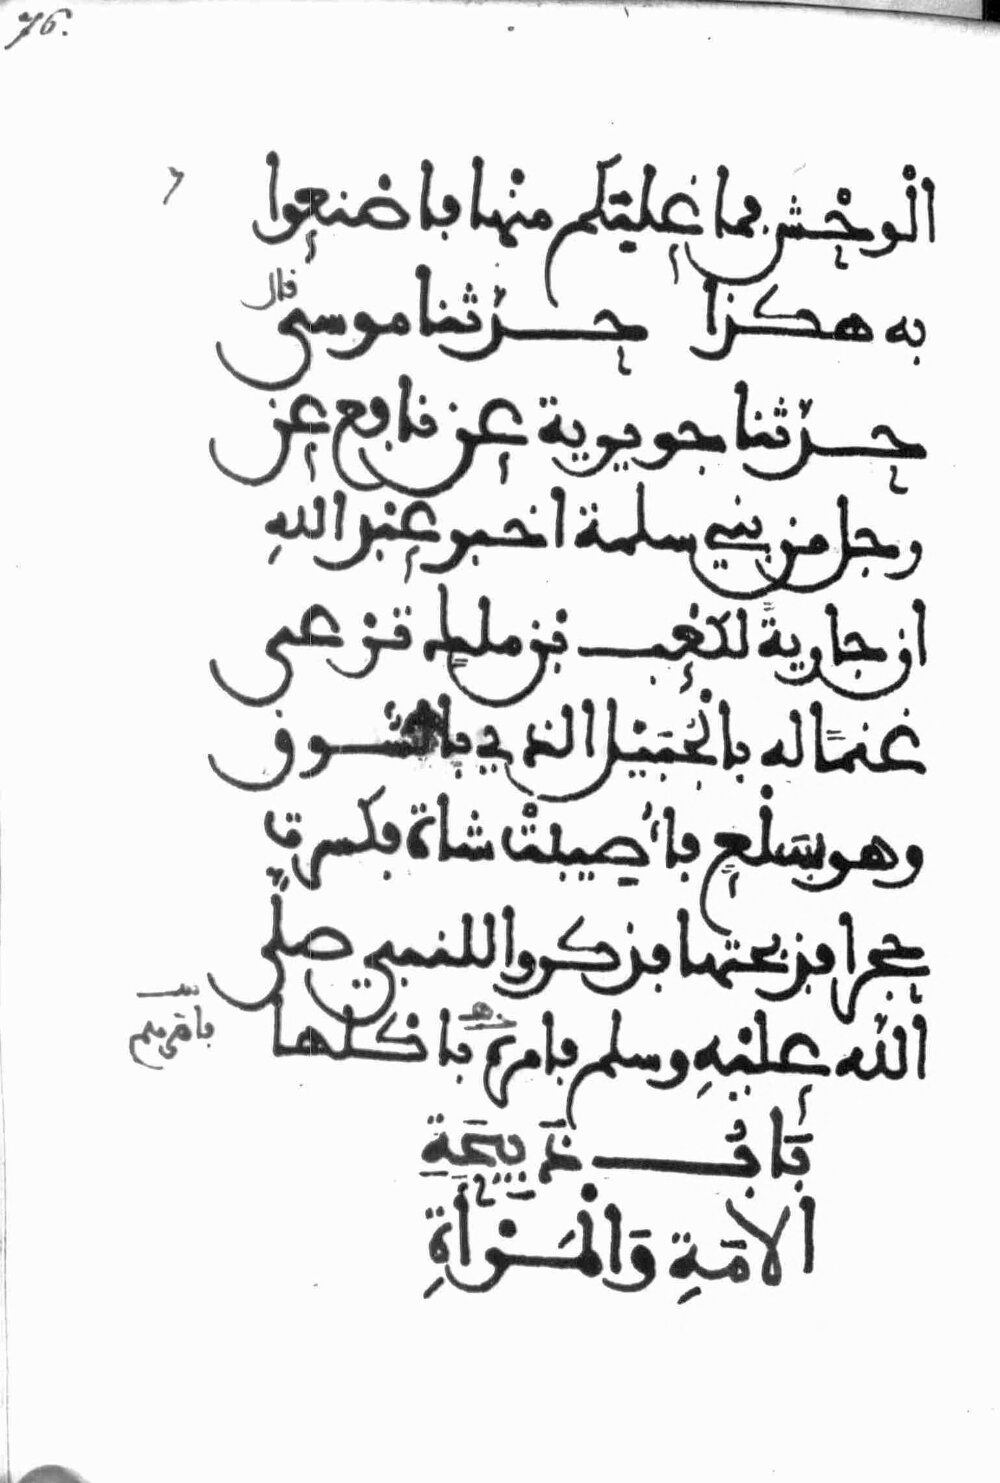 76.
الْوحْش فما غلبكم منها فاصْنعوا
به هكذا حدثنا موسى قال
حدثنا جويرية عن نافع عن
رجل من بني سلمة اخبر عبد الله
ان جاريةً لكعْب بن ملك ترعى
غنمًا له بالجُبَيْل الذي بالسُّوق
وهو بسَلْعٍ فأُصيبتْ شاة فكسرت
حجرا فذبحتها فذكروا للنبي صلى
الله عليْهِ وسلم فأمرهم فأكلها
بَابُ ذَبِيحَةِ
الامَةِ وَالْمَرْأةِ